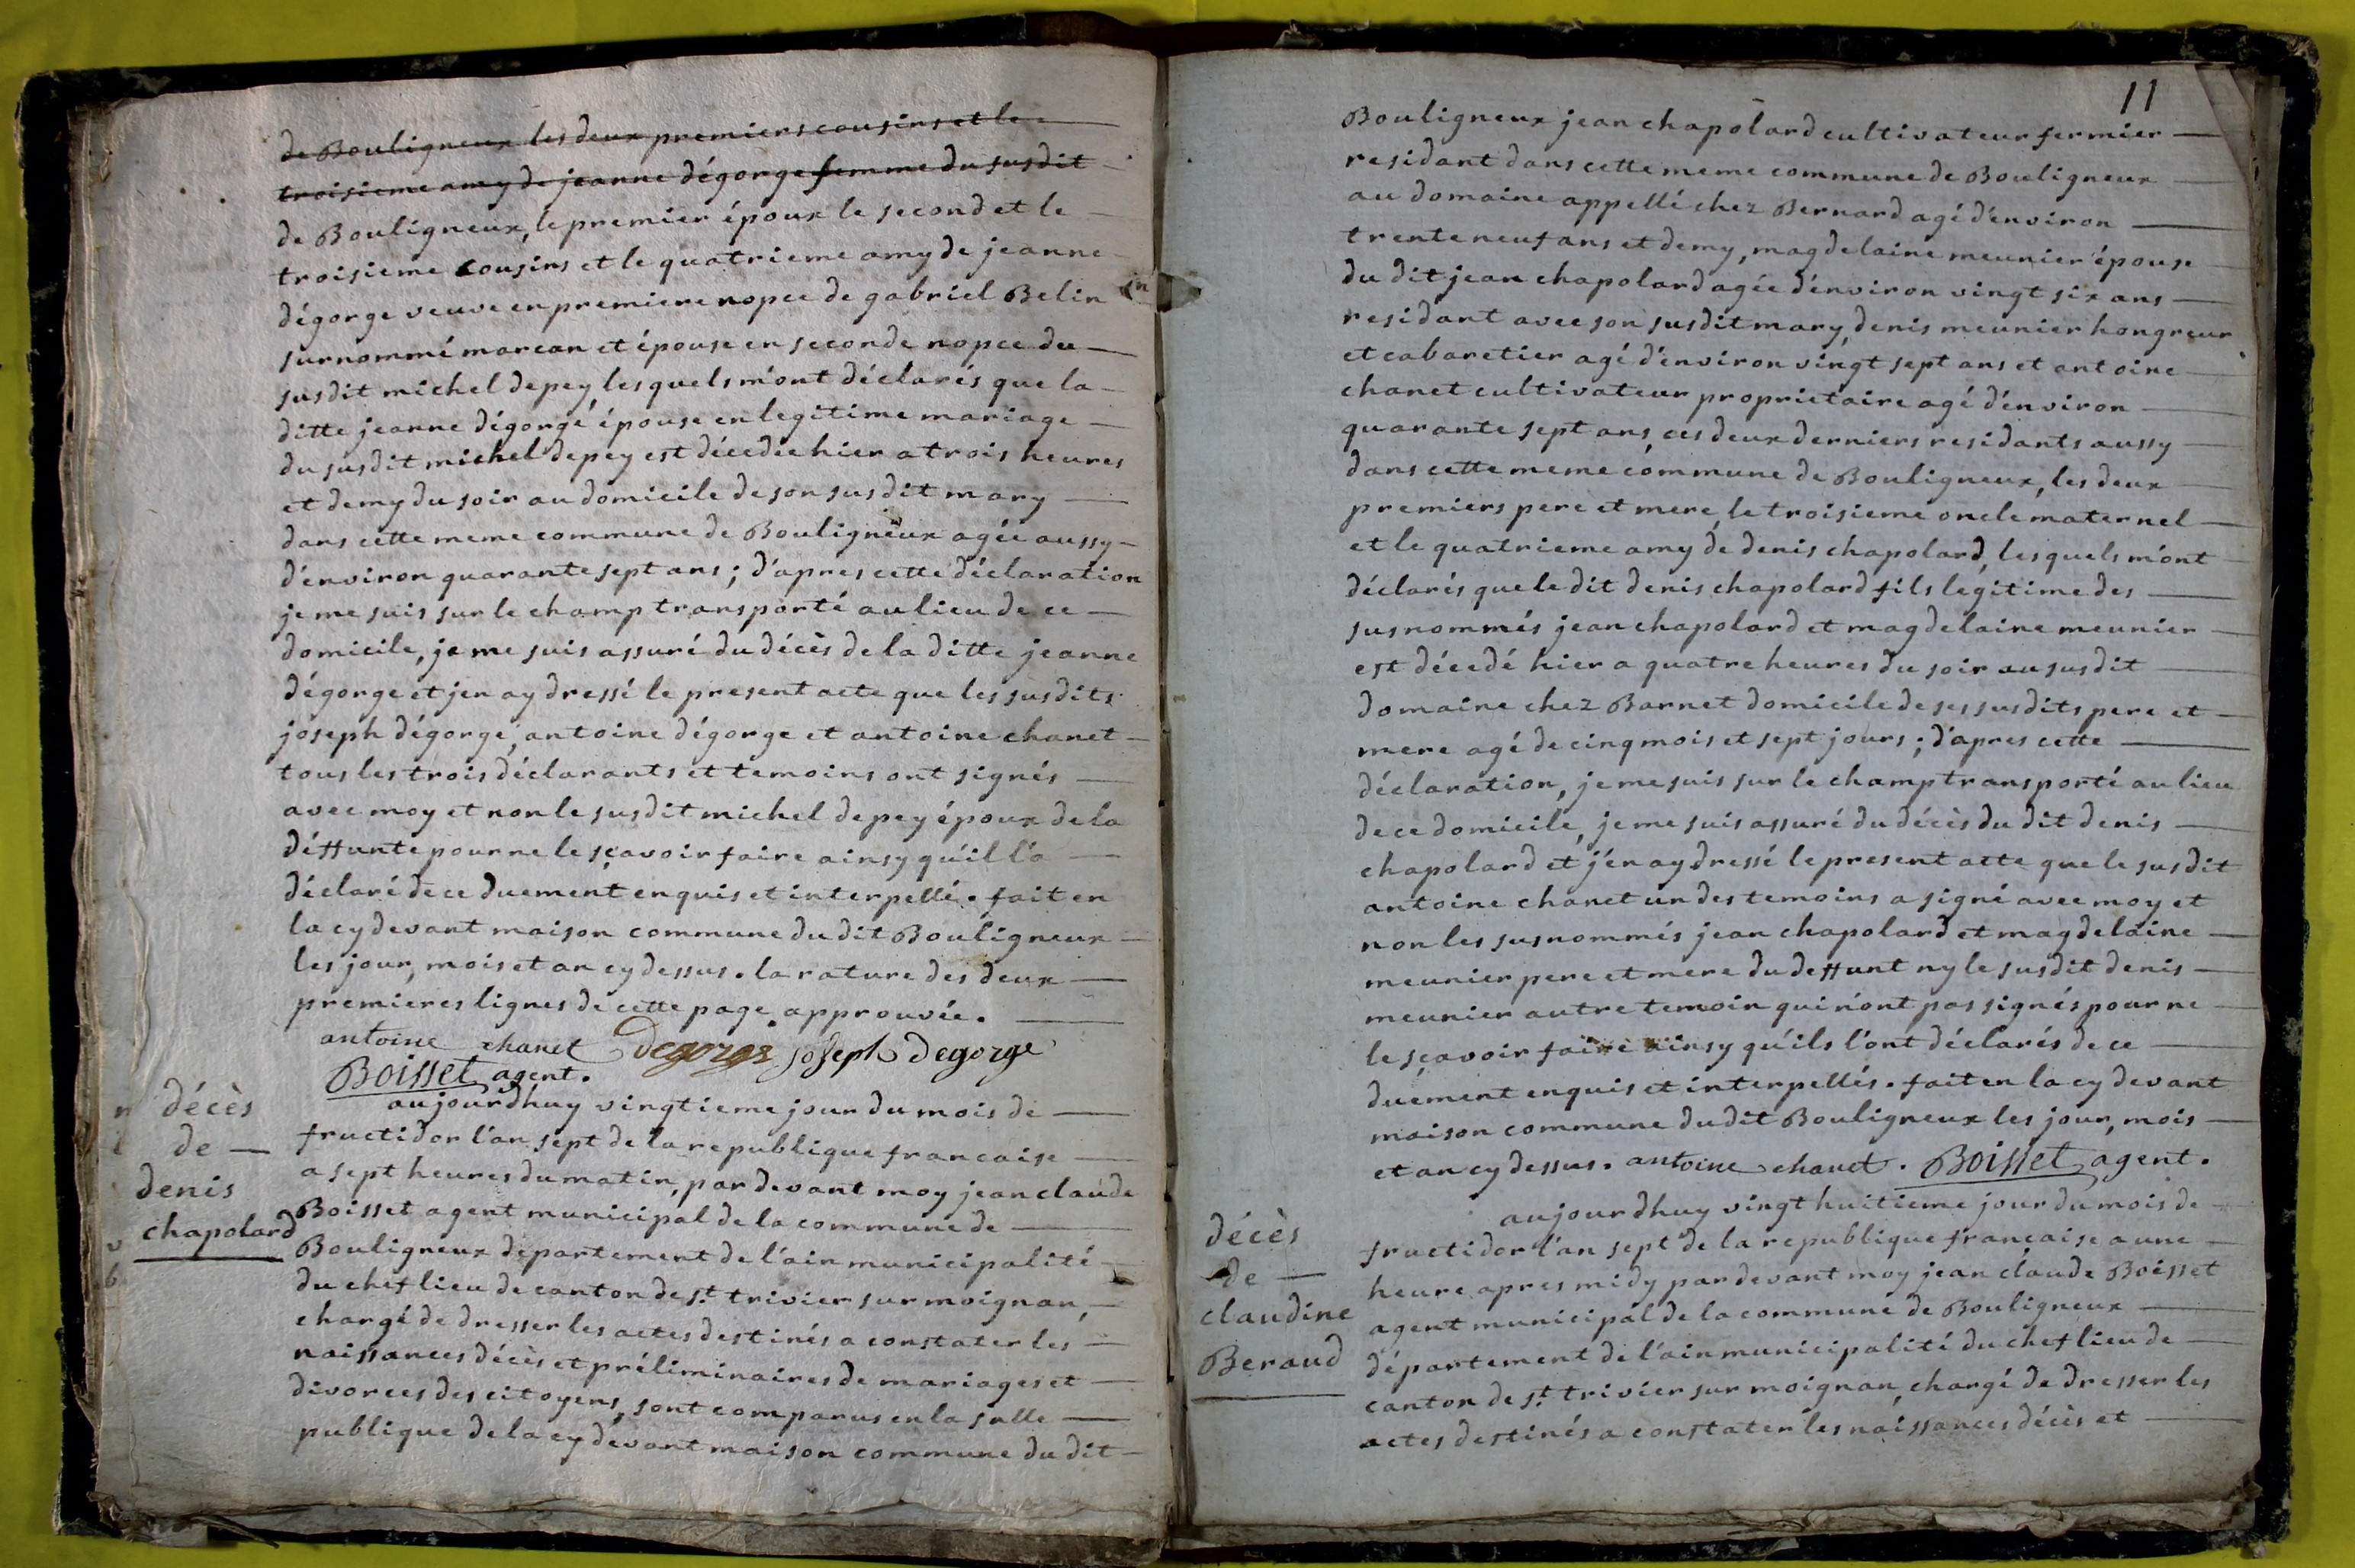 de Bouligneux les deux premiers cousins et le
troisieme amy de jeanne dégorge femme du susdit
de Bouligneux, le premier époux le second et le
troisieme cousins et le quatrieme amy de jeanne
dégorge veuve en premiere nopce de gabriel Belin
surnommé marcan et épouse en seconde nopce du
susdit michel depey, les quels m'ont déclarés que la
ditte jeanne dégorge épouse en legitime mariage
du susdit michel depey est décedée hier a trois heures
et demy du soir au domicile de son susdit mary
dans cette meme commune de Bouligneux agée aussy
d'environ quarante sept ans ; d'apres cette déclaration
je me suis sur le champ transporté au lieu de ce
domicile, je me suis assuré du décès de la ditte jeanne
dégorge et jen ay dressé le present acte que les susdits
joseph dégorge, antoine dégorge et antoine chanet
tous les trois déclarants et temoins ont signés
avec moy et non le susdit michel depey époux de la
déffunte pour ne le sçavoir faire ainsy qu'il l'a
déclaré de ce duement enquis et interpellé. fait en
la cy devant maison commune du dit Bouligneux
les jour, mois et an cy dessus. la rature des deux
premieres lignes de cette page approuvée.
antoine chanet Degorge joseph Degorge
Boisset agent.
décès
de
denis
chapolard
aujourdhuy vingtieme jour du mois de
fructidor l'an sept de la republique francaise
a sept heures du matin, par devant moy jean claude
Boisset agent municipal de la commune de
Bouligneux departement de l'ain municipalité
du chef lieu de canton de st. trivier sur moignan,
chargé de dresser les actes destinés a constater les
naissances décès et préliminaires de mariages et
divorces des citoyens, sont comparus en la salle
publique de la cy devant maison commune du dit
11
Bouligneux jean chapolard cultivateur fermier
residant dans cette meme commune de Bouligneux
au domaine appellé chez Bernard agé d'environ
trente neuf ans et demy, magdelaine meunier épouse
du dit jean chapolard agée d'environ vingt six ans
residant avec son susdit mary, denis meunier hongreur
et cabaretier agé d'environ vingt sept ans et antoine
chanet cultivateur proprietaire agé d'environ
quarante sept ans, ces deux derniers residants aussy
dans cette meme commune de Bouligneux, les deux
premiers pere et mere, le troisieme oncle maternel
et le quatrieme amy de denis chapolard, les quels m'ont
déclarés que le dit denis chapolard fils legitime des
susnommés jean chapolard et magdelaine meunier
est décedé hier a quatre heures du soir au susdit
domaine chez Barnet domicile de ses susdits pere et
mere agé de cinq mois et sept jours ; d'apres cette
déclaration, je me suis sur le champ transporté au lieu
de ce domicile, je me suis assuré du décès du dit denis
chapolard et j'en ay dressé le present acte que le susdit
antoine chanet un des temoins a signé avec moy et
non les susnommés jean chapolard et magdelaine
meunier pere et mere du deffunt ny le susdit denis
meunier autre temoin qui n'ont pas signés pour ne
le sçavoir faire ainsy qu'ils l'ont déclarés de ce
duement enquis et interpellés. fait en la cy devant
maison commune dudit Bouligneux les jour, mois
et an cy dessus. antoine chanet. Boisset agent.
décès
de
claudine
Beraud
aujourdhuy vingt huitieme jour du mois de
fructidor l'an sept de la republique française a une
heure apres midy par devant moy jean claude Boisset
agent municipal de la commune de Bouligneux
département de l'ain municipalité du chef lieu de
canton de st. trivier sur moignan, chargé de dresser les
actes destinés a constater les naissances décès et